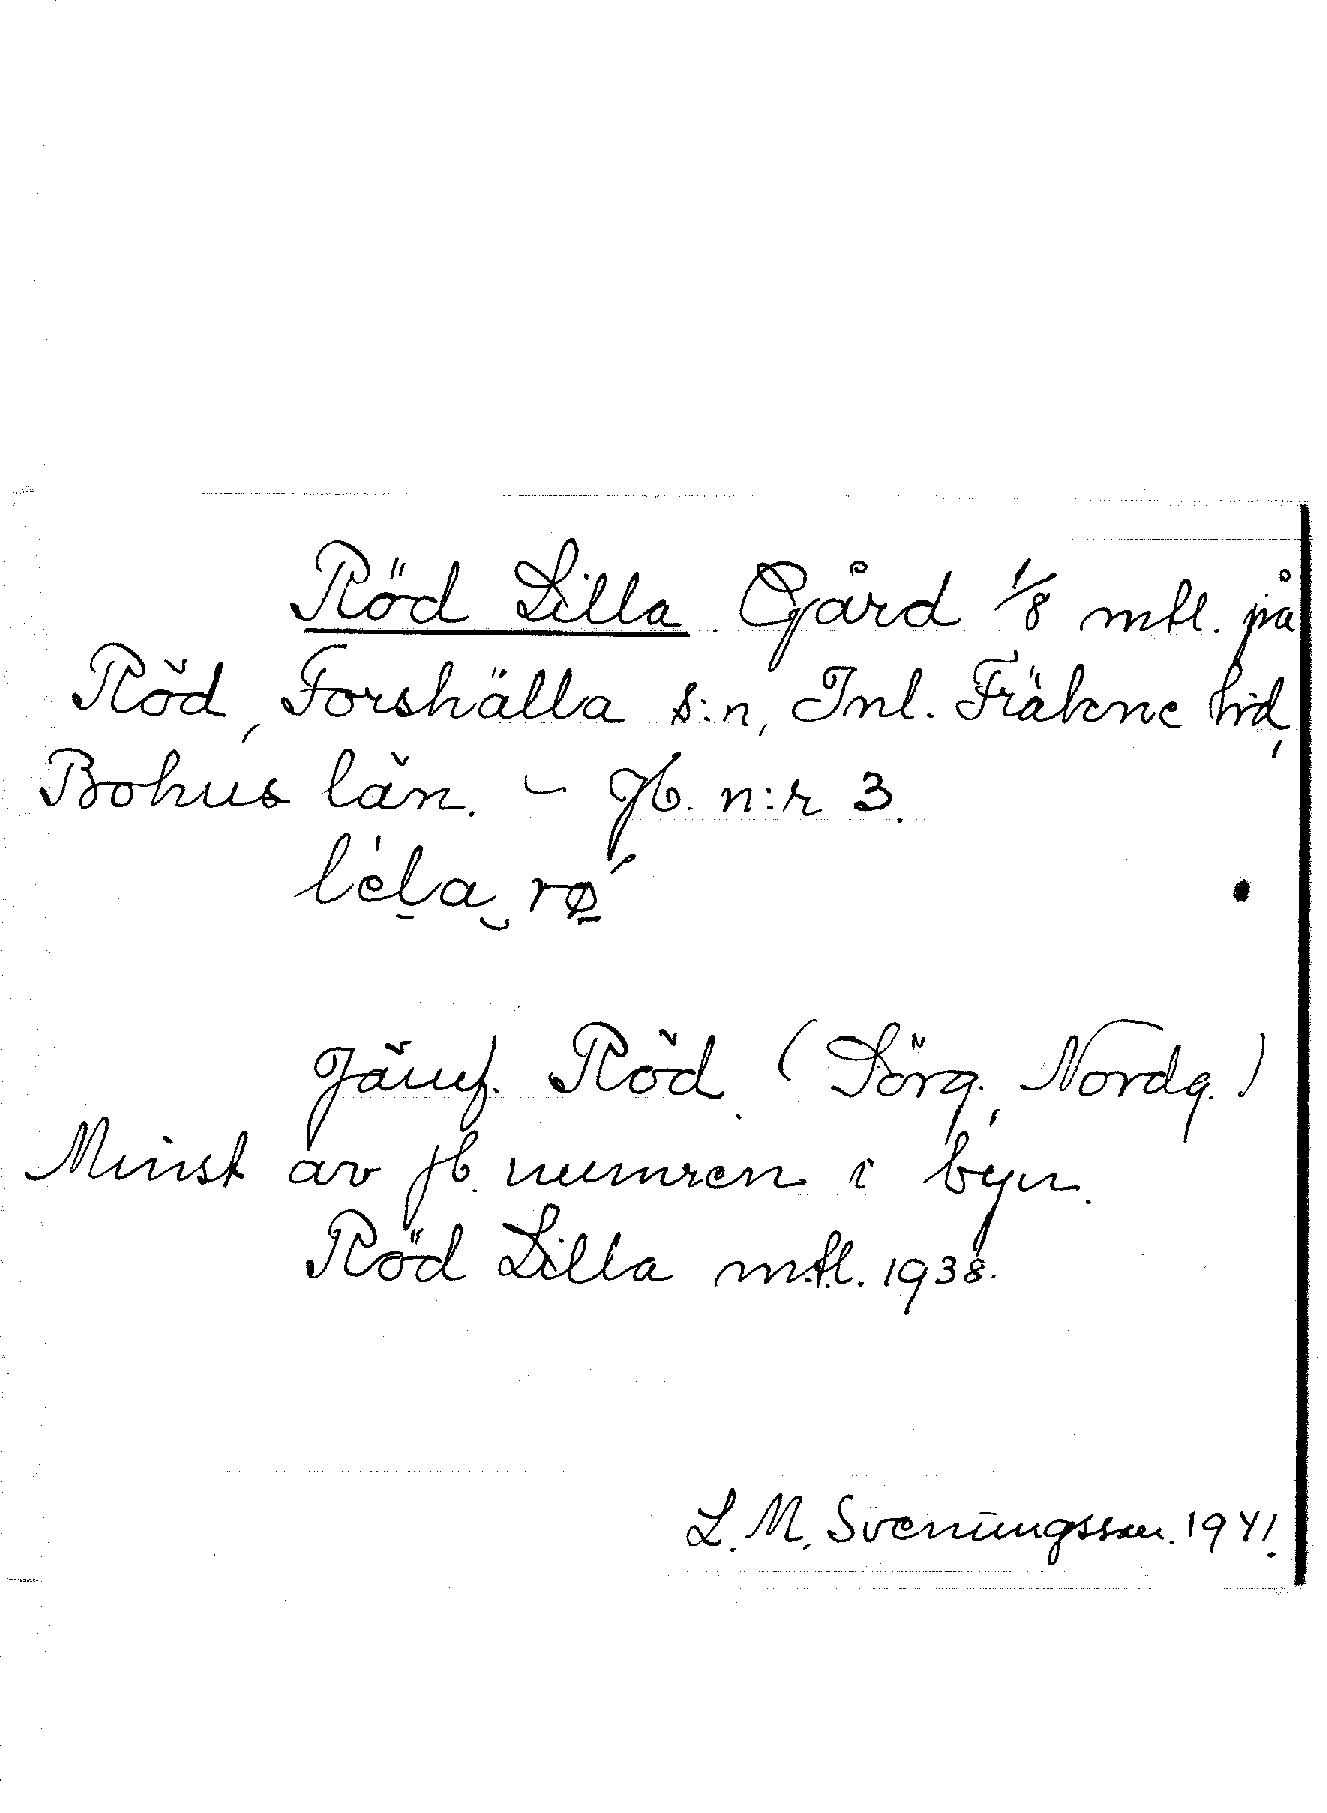 Röd Lilla. Gård 1/8 mtl. på
Röd, Forshälla s:n, Inl. Fräkne hd,
Bohus län. – Jb. n:r 3.
léla rø´
Jämf. Röd. (Sörg., Nordg.)
Minst av jb. numren i byn.
Röd Lilla mtl. 1938.
L. M. Svenungsson. 1941.